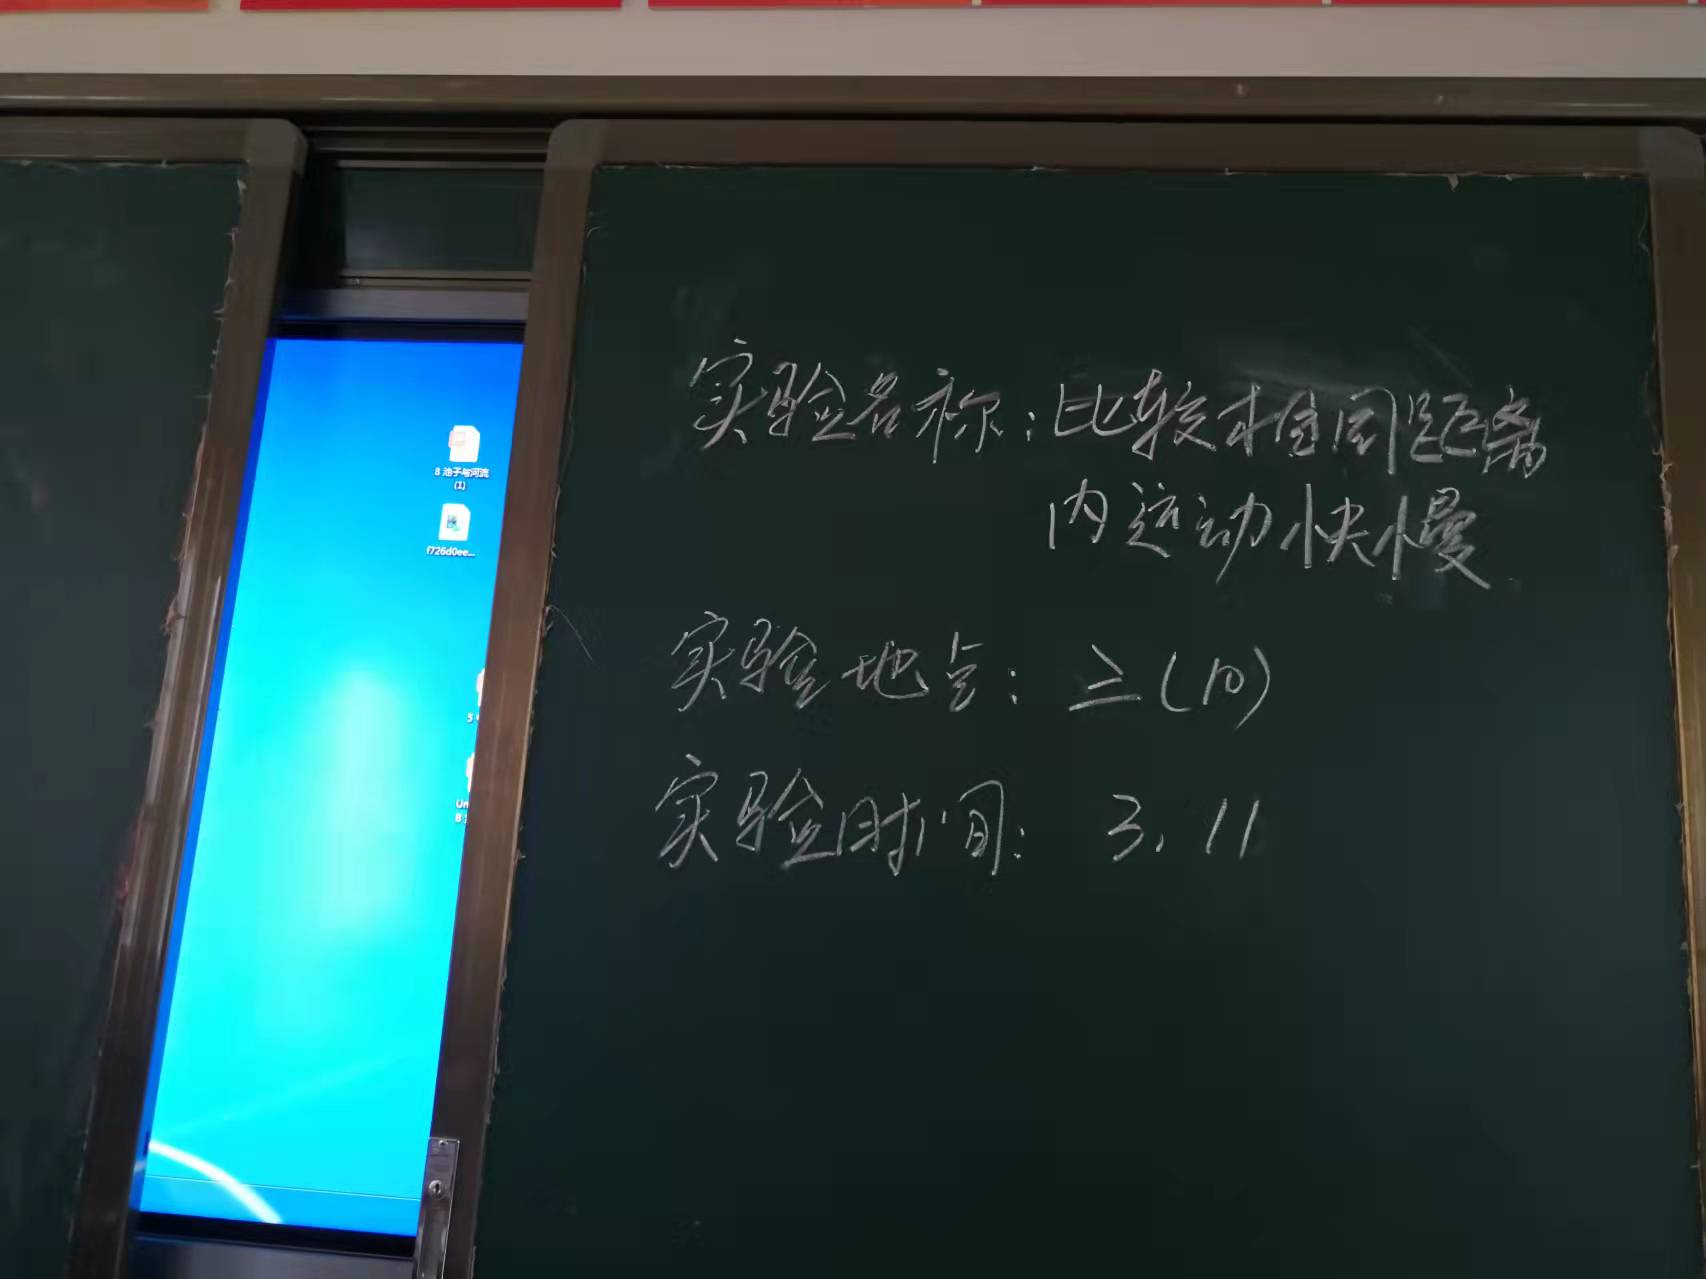 8 池子与河流
(1)
f726d0ee...
5
Un
8
实验名称:比较相同距离
内运动快慢
实验地点:三(10)
实验时间:3.11